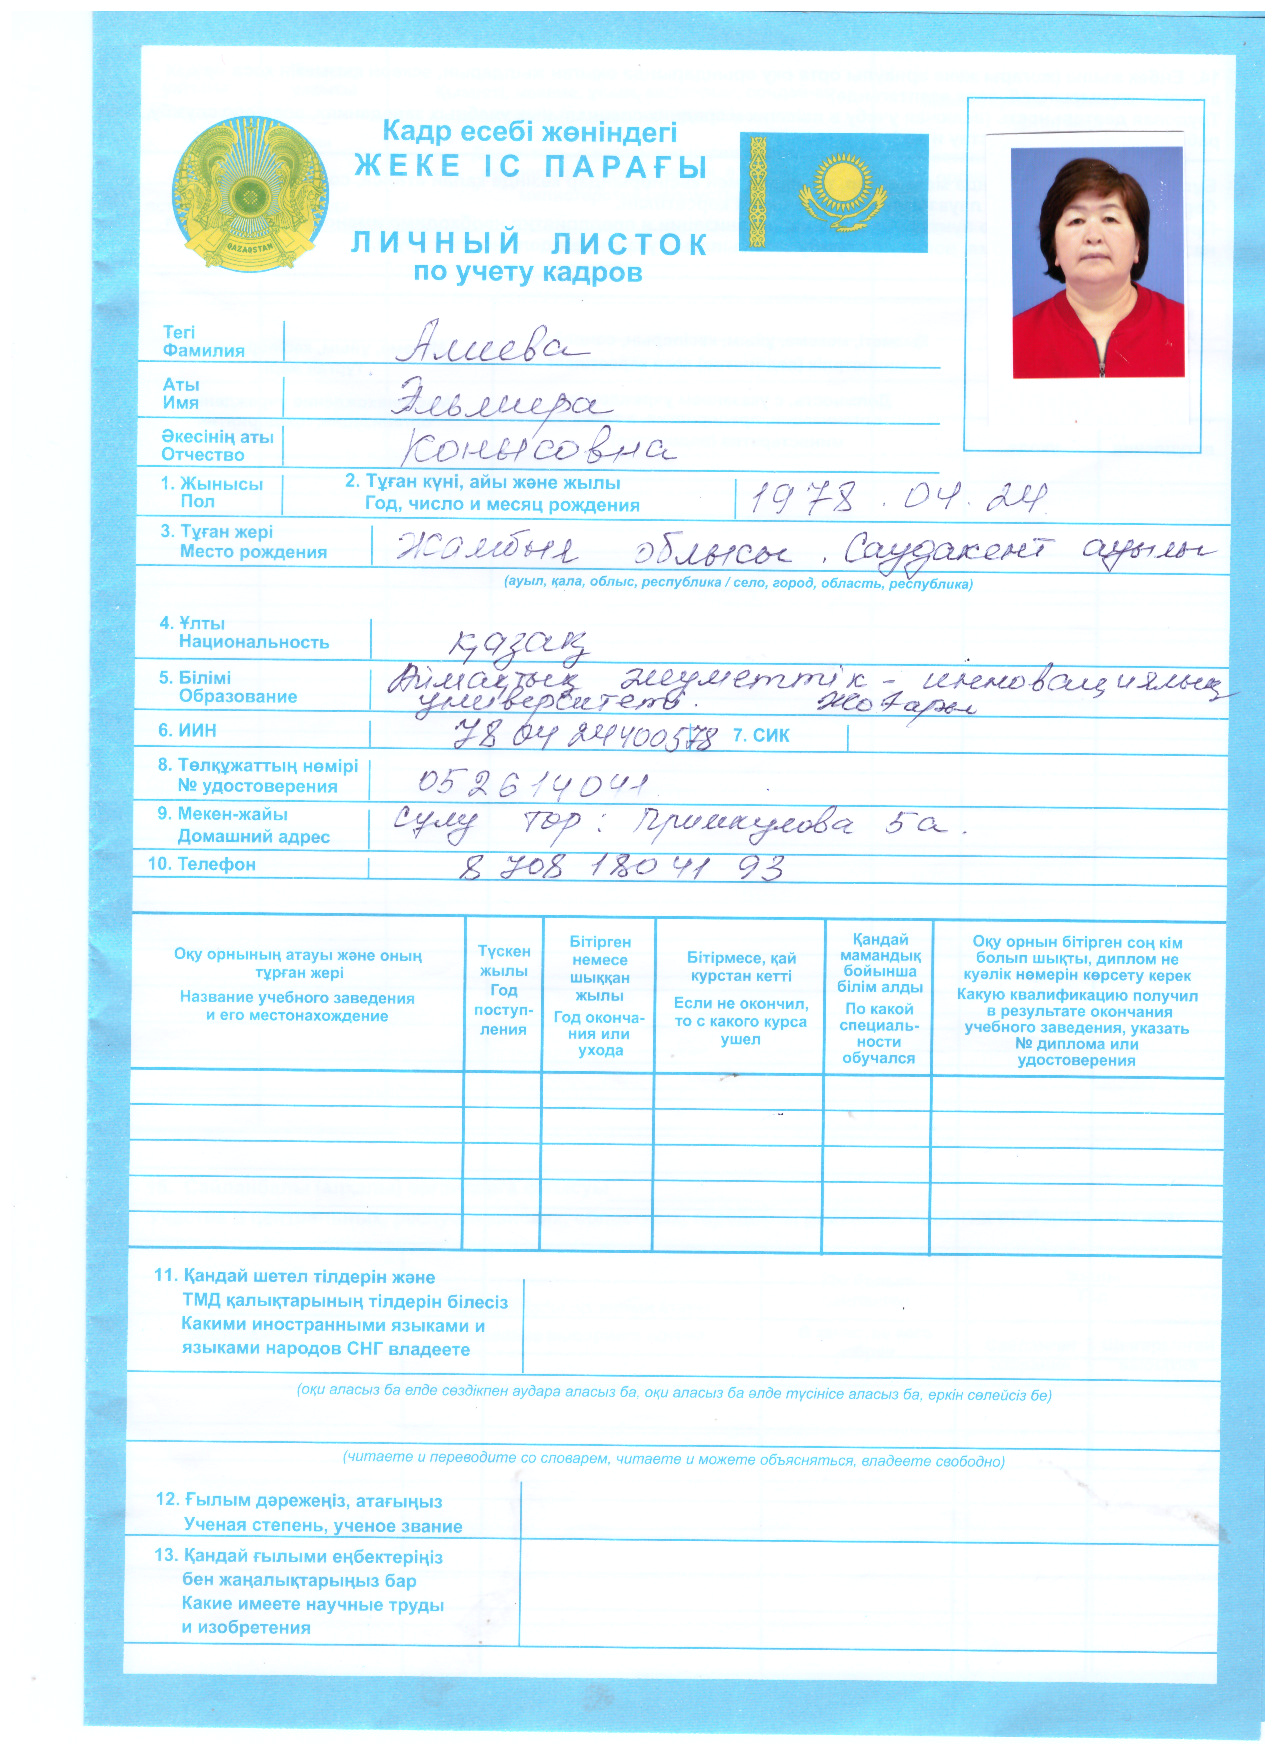 Кадр есебі жөніндегі
ЖЕКЕ ІС ПАРАҒЫ
ЛИЧНЫЙ ЛИСТОК
по учету кадров
QAZAQSTAN
Тегі
Фамилия
Алиева
Аты
Имя
Эльмира
Әкесінің аты
Отчество
Конысовна
1. Жынысы
Пол
2. Тұған күні, айы және жылы
Год, число и месяц рождения
1978.04.24
3. Тұған жері
Место рождения
Жамбыл облысы, Саудакент ауылы
(ауыл, қала, облыс, республика / село, город, область, республика)
4. Ұлты
Национальность
қазақ
5. Білімі
Образование
Аймақтық әлеуметтік - инновациялық
университеті. Жоғары
6. ИИН
780424400578
7. СИК
8. Төлқұжаттың нөмірі
№ удостоверения
052614041
9. Мекен-жайы
Домашний адрес
Сулу төр: Примкулова 5а.
10. Телефон
8 708 180 41 93
Оқу орнының атауы және оның
тұрған жері
Название учебного заведения
и его местонахождение
Түскен
жылы
Год
поступ-
ления
Бітірген
немесе
шыққан
жылы
Год оконча-
ния или
ухода
Бітірмесе, қай
курстан кетті
Если не окончил,
то с какого курса
ушел
Қандай
мамандық
бойынша
білім алды
По какой
специаль-
ности
обучался
Оқу орнын бітірген соң кім
болып шықты, диплом не
куәлік нөмерін көрсету керек
Какую квалификацию получил
в результате окончания
учебного заведения, указать
№ диплома или
удостоверения
11. Қандай шетел тілдерін және
ТМД қалықтарының тілдерін білесіз
Какими иностранными языками и
языками народов СНГ владеете
(оқи аласыз ба әлде сөздікпен аудара аласыз ба, оқи аласыз ба әлде түсінісе аласыз ба, еркін сөлейсіз бе)
(читаете и переводите со словарем, читаете и можете объясняться, владеете свободно)
12. Ғылым дәрежеңіз, атағыңыз
Ученая степень, ученое звание
13. Қандай ғылыми еңбектеріңіз
бен жаңалықтарыңыз бар
Какие имеете научные труды
и изобретения